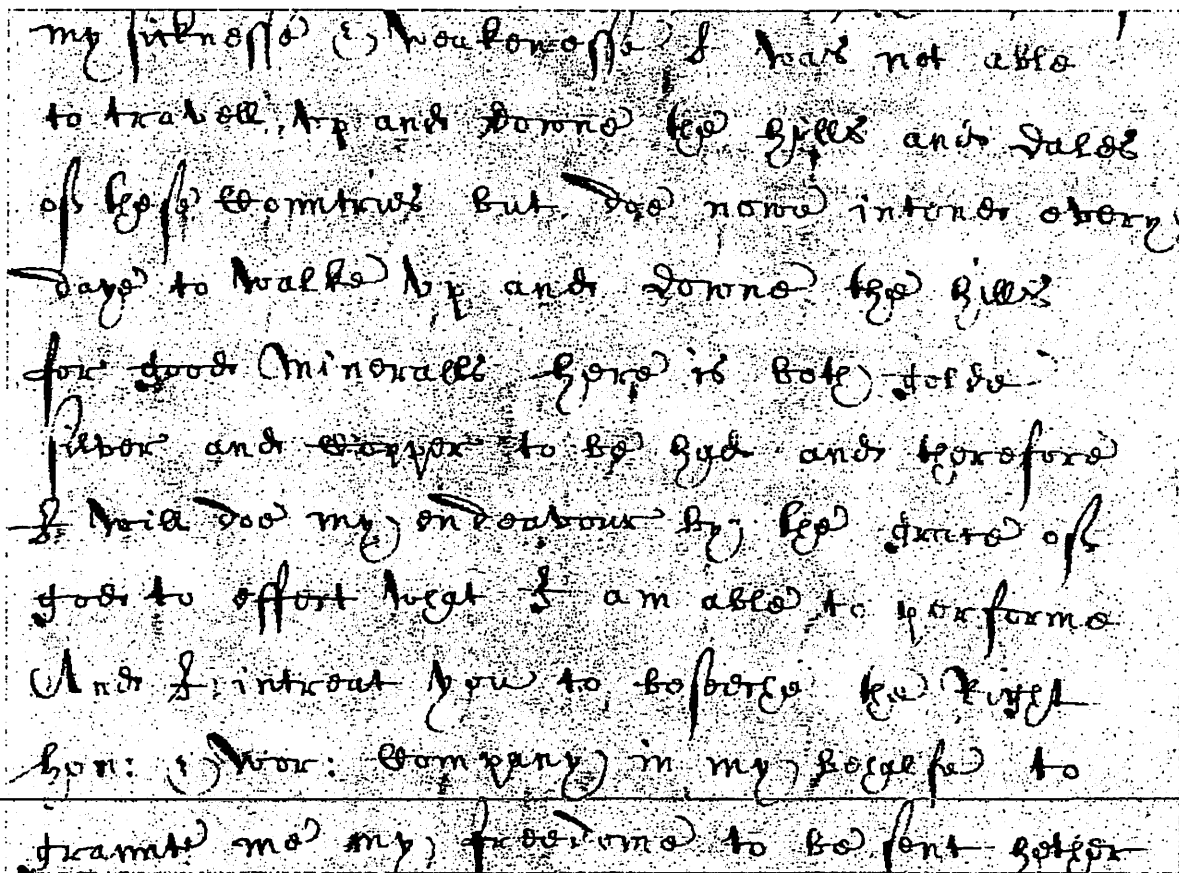 my sicknesse & weakenesse I was not able
to travell vp and downe the hills and dales
of these Countries but doe nowe intend every
daye to walke vp and downe the hills
for good Mineralls here is both golde
silver and Copper to be had and therefore
I will doe my endeavour by the grace of
god to effect what I am able to performe
And I intreat you to beseeche the Right
hon: & wor: Company in my behalfe to
graunte me my freedome to be sent